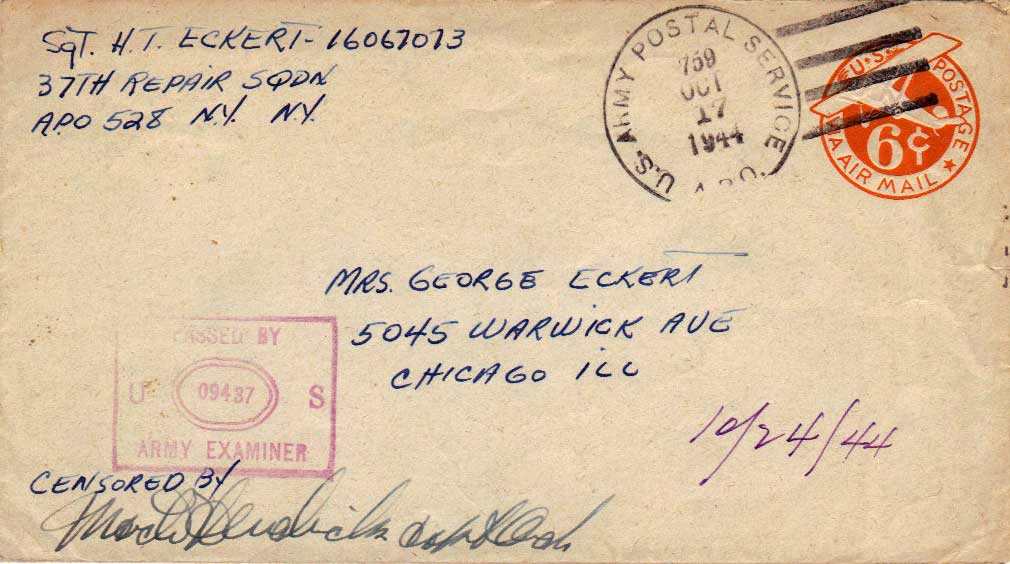 SGT. H.T. ECKERT - 16067073
37TH REPAIR SQDN
APO 528 N.Y. N.Y.
U.S. ARMY POSTAL SERVICE
759
OCT
17
1944
A.P.O.
U.S. POSTAGE
6¢
VIA AIR MAIL
MRS. GEORGE ECKERT
5045 WARWICK AVE
CHICAGO ILL
PASSED BY
U 09437 S
ARMY EXAMINER
10/24/44
CENSORED BY